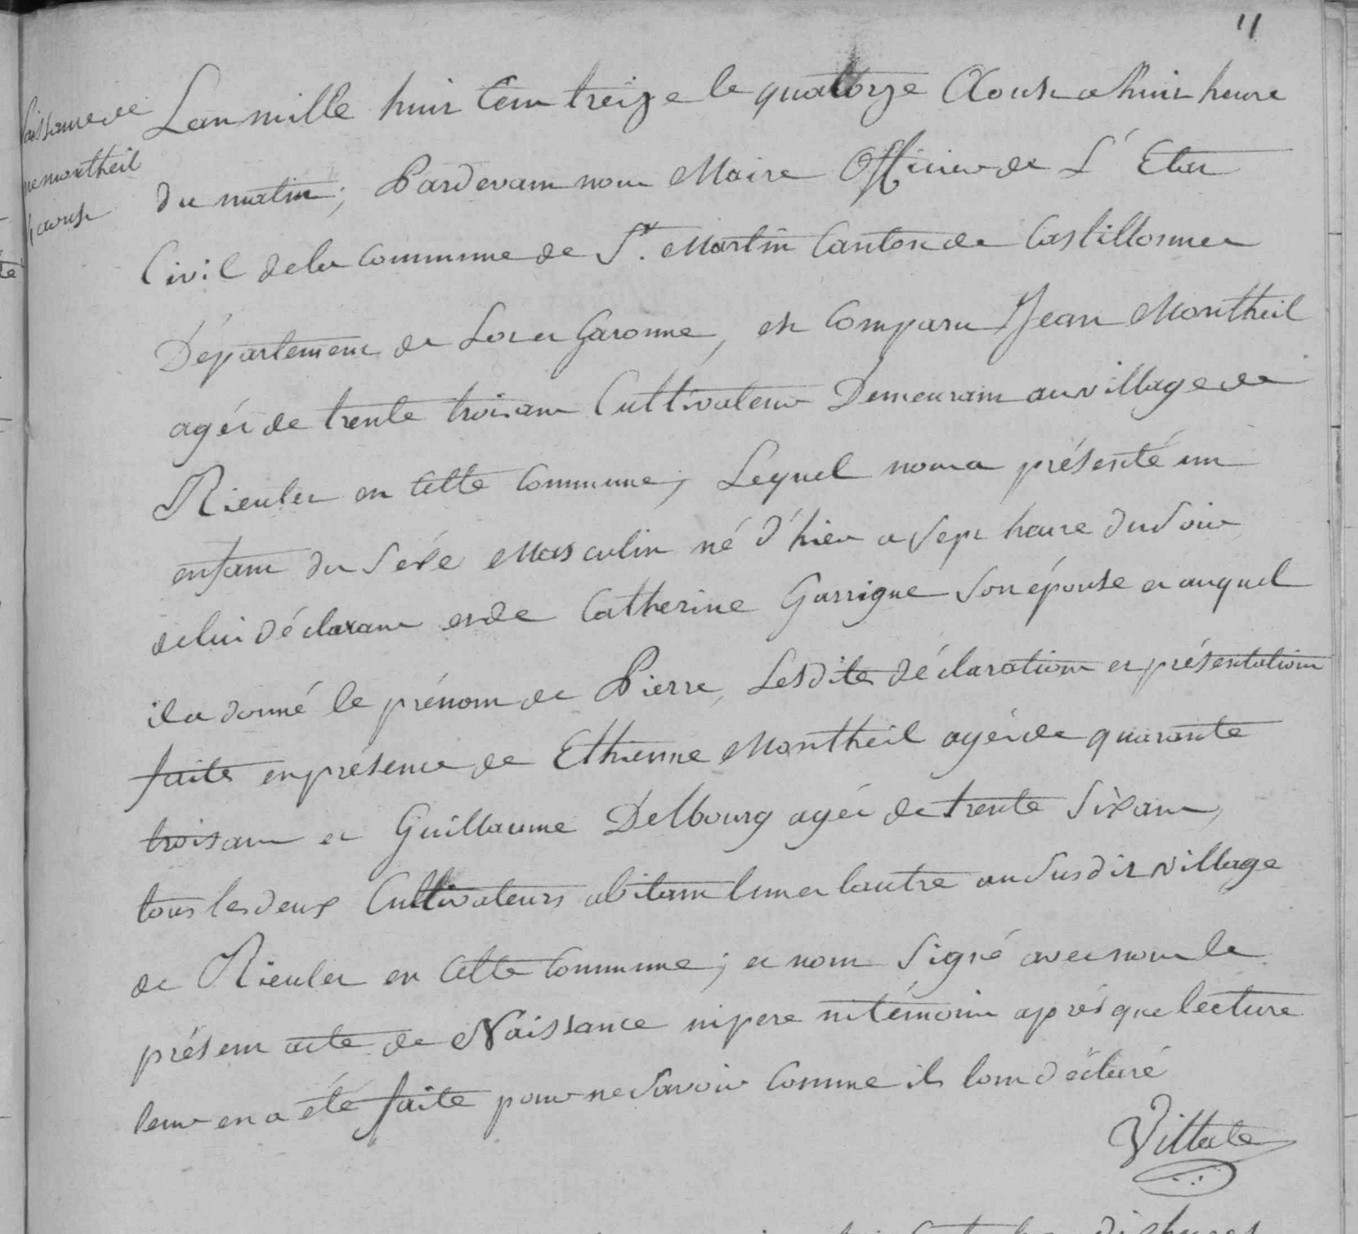 11
Naissance de
Pierre montheil
14 aoust
Lan mille huit Cent treize le quatorze Aoust a huit heure
du matin; Pardevant nous Maire Officier de L'Etat
Civil dela Commune de St. Martin Canton de Castillonnes
Département de Lot et Garonne, est Comparu Jean Montheil
agéé de trente trois ans Cultivateur Demeurant au village de
Rieulet en Cette Commune; Lequel nous a présenté un
enfant du Sexe Masculin né d'hier a Sept heure du Soir
de lui déclarant et de Catherine Garrigue Son épouse et auquel
il a donné le prénom de Pierre, Lesdite déclaration et présentation
faite en présence de Ethienne Montheil agéé de quarante
trois ans et Guillaume Delbourg agéé de trente Six ans,
tous les deux Cultivateurs abitant lun et lautre au Susdit village
de Rieulet en Cette Commune; et nont Signé avec nous le
présent acte de Naissance ni pere ni témoin aprés que lecture
leur en a été faite pour ne Savoir Comme ils lont déclaré
Villate